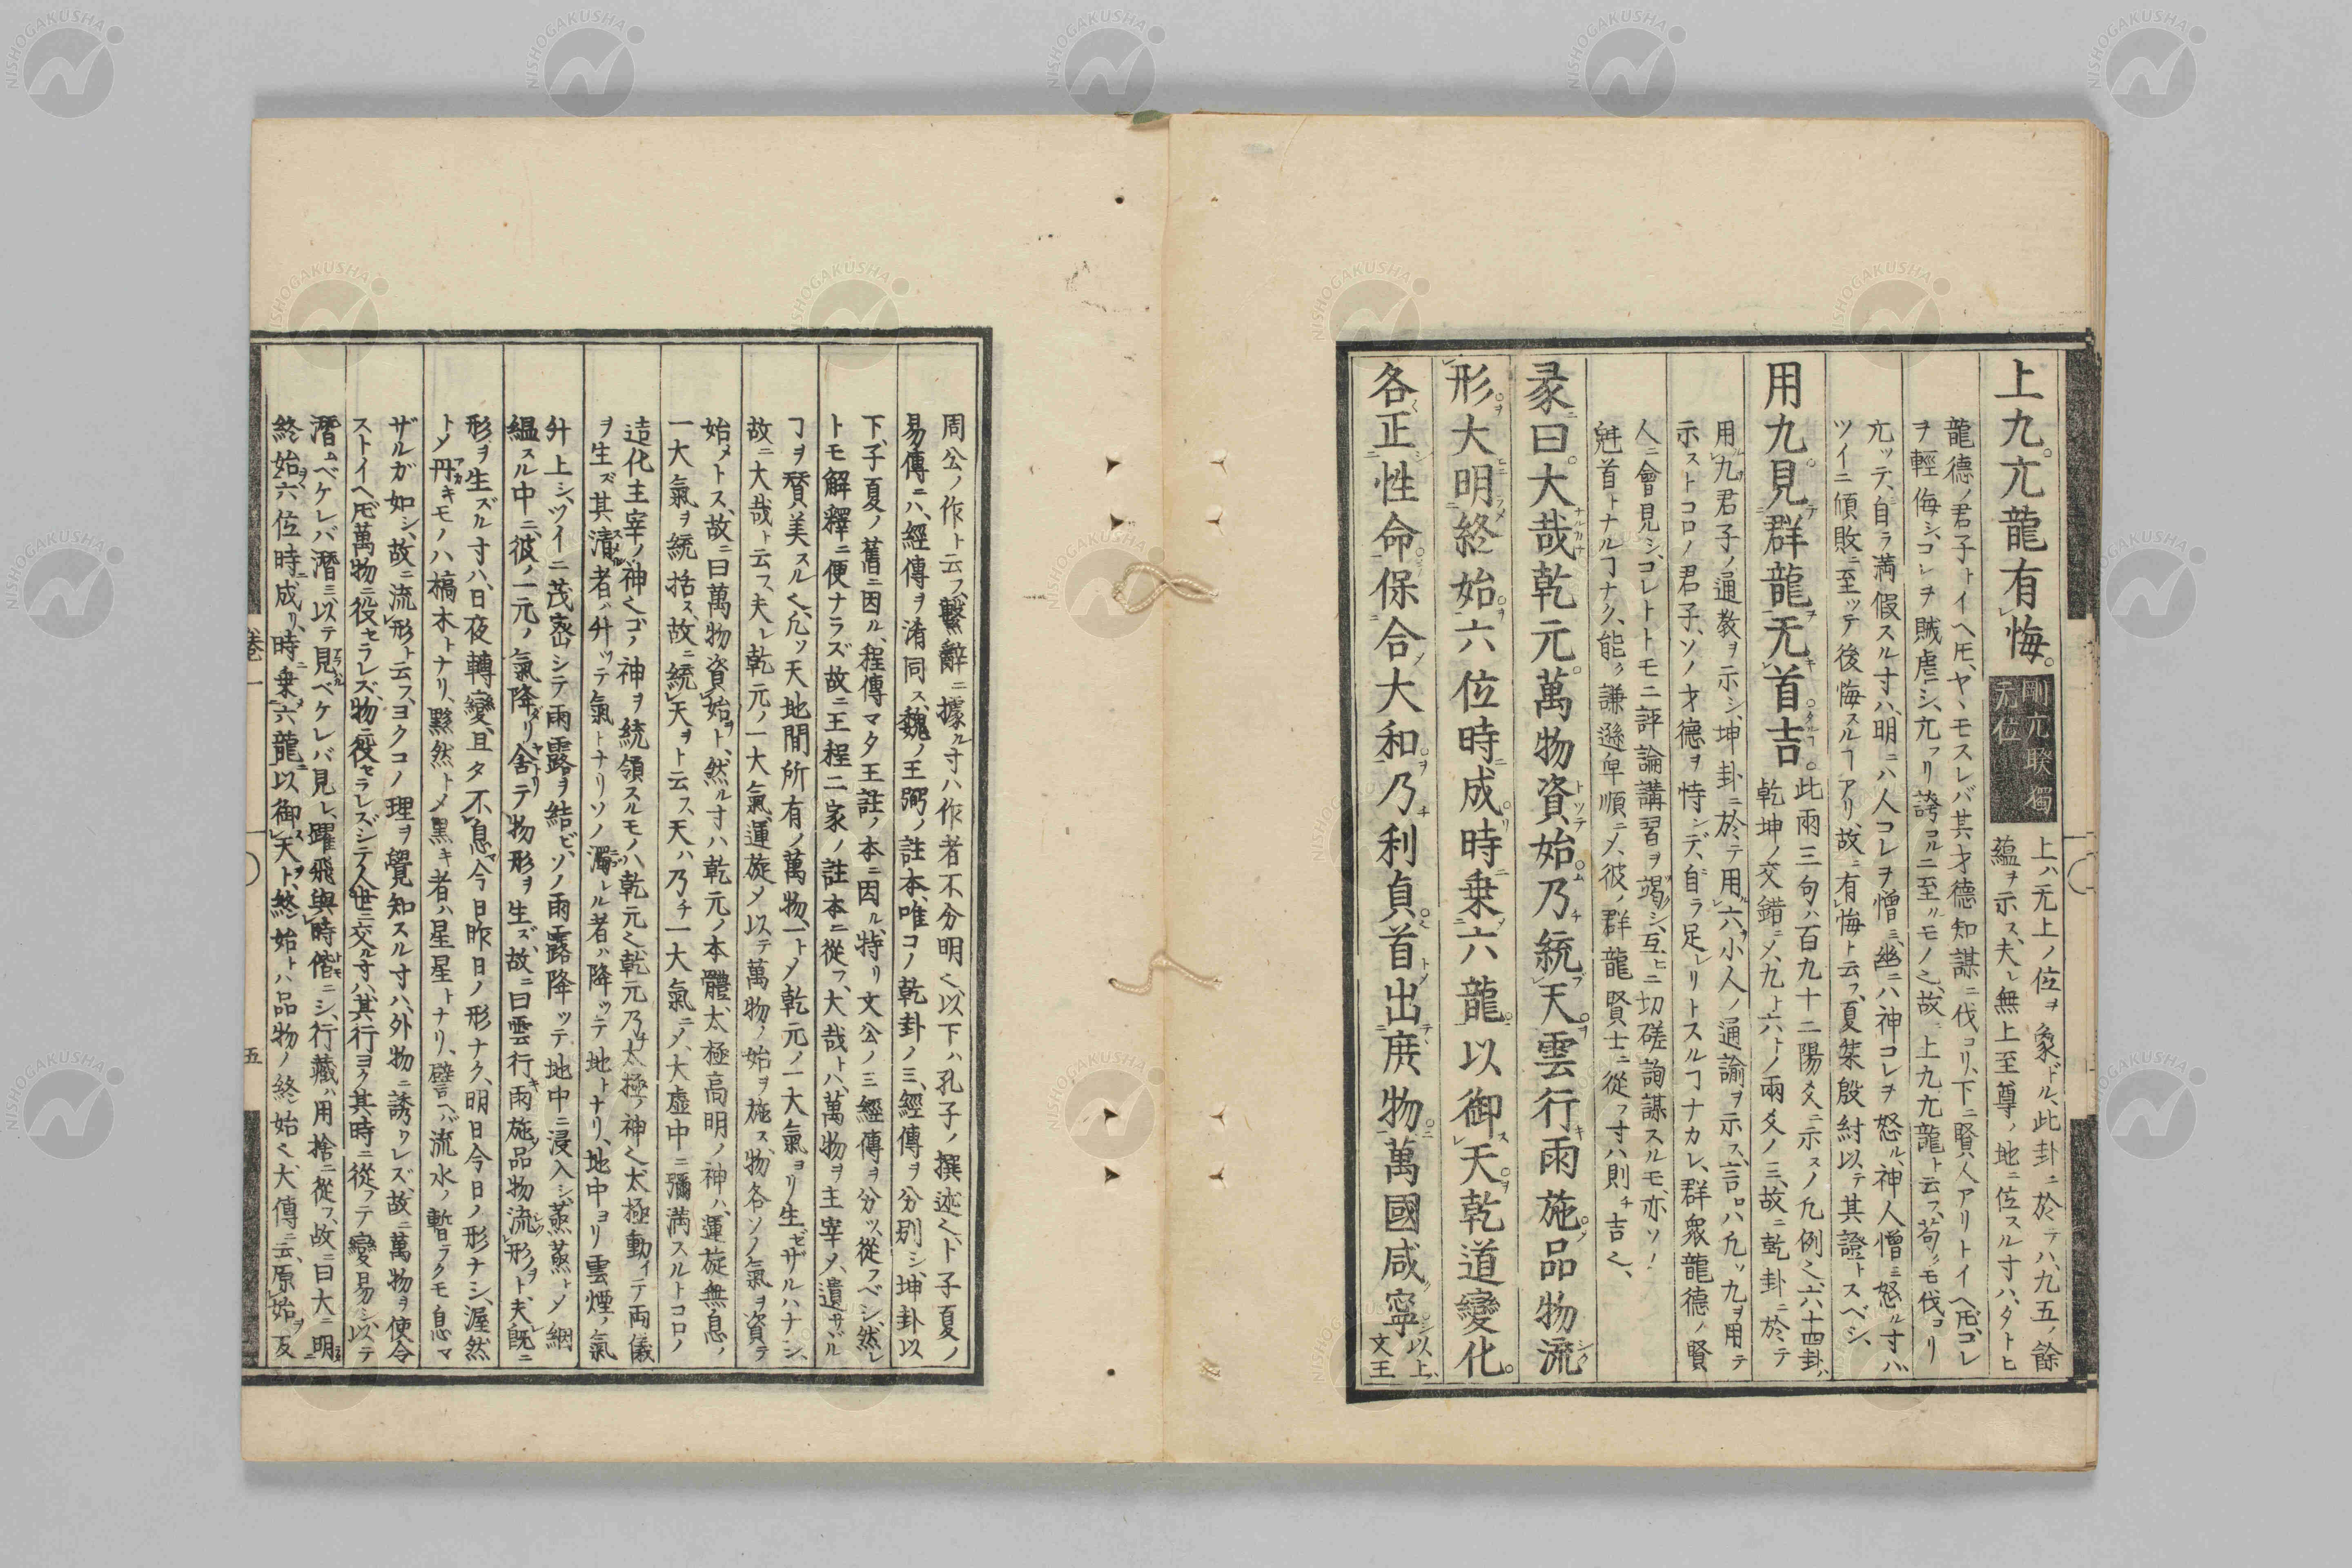 上九。亢龍有悔。
剛亢睽獨
天位
上ハ无上ノ位ヲ象ドル、此卦ニ於テハ、九五ノ餘
蘊ヲ示ス、夫レ無上至尊ノ地ニ位スル寸ハ、タトヒ
龍德ノ君子トイヘ𪜈、ヤヽモスレバ其才德知謀ニ伐コリ、下ニ賢人アリトイヘ𪜈、コレ
ヲ輕侮シ、コレヲ賊虐シ、亢フリ誇コルニ至ルモノ𛀆、故ニ上九亢龍ト云フ、苟シクモ伐コリ
亢ッテ、自ラ満假スル寸ハ、明ニハ人コレヲ憎ミ、幽ニハ神コレヲ怒ル、神人憎ミ怒ル寸ハ
ツイニ傾敗ニ至ッテ後悔スルヿアリ、故ニ有悔ト云フ、夏桀殷紂以テ其證トスベシ、
用九見群龍无首吉。
此兩三句ハ百九十二陽爻ニ示スノ凡例𛀆、六十四卦ハ
乾坤ノ交錯ニメ、九ト六トノ兩爻ノミ、故ニ乾卦ニ於テ
用九君子ノ通教ヲ示シ、坤卦ニ於テ用六小人ノ通諭ヲ示ス、言ロハ凡ソ九ヲ用テ
示ストコロノ君子、ソノ才德ヲ恃ンデ、自ラ足レリトスルヿナカレ、群衆龍德ノ賢
人ニ會見シ、コレトトモニ評論講習ヲ竭シ、互ヒニ切磋詢謀スルモ、亦ソノ
魁首トナルヿナク、能ク謙遜卑順ニメ、彼ノ群龍賢士ニ從フ寸ハ則チ吉𛀆、
彖曰。大哉乾元。萬物資始。乃統天。雲行雨施。品物流
形。大明終始。六位時成。時乗六龍。以御天。乾道變化。
各正性命。保合大和。乃利貞。首出庶物。萬國咸寧。
以上、
文王
周公ノ作ト云フ、繫辭ニ據ル寸ハ作者不分明𛀆、以下ハ孔子ノ撰述𛀆、ト子夏ノ
易傳ニハ、經傳ヲ淆同ス、魏ノ王弼ノ註本、唯コノ乾卦ノミ、經傳ヲ分別シ、坤卦以
下、子夏ノ舊ニ因ル、程傳マタ王註ノ本ニ因ル、特リ文公ノミ經傳ヲ分ツ、從フベシ、然レ
トモ解釋ニ便ナラズ故ニ王程二家ノ註本ニ從フ、大哉トハ、萬物ヲ主宰メ、遺サバル
ヿヲ賛美スル𛀆、凡ソ天地間所有ノ萬物、一トメ乾元ノ一大氣ヨリ生ゼザルハナシ、
故ニ大哉ト云フ、夫レ乾元ノ一大氣、運旋メ以テ萬物ノ始ヲ施ス、物各ソノ氣ヲ資テ
始メトス、故ニ曰萬物資始ト、然ル寸ハ乾元ノ本體、太極高明ノ神ハ、運旋無息ノ
一大氣ヲ統括ス、故ニ統天ヲト云フ、天ハ乃チ一大氣ニメ、大虚中ニ彌満スルトコロノ
造化主宰ノ神𛀆、コノ神ヲ統領スルモノハ乾元𛀆、乾元乃チ太極ノ神𛀆、太極動イテ両儀
ヲ生ズ其清者ハ升ッテ氣トナリソノ濁レル者ハ降ッテ地トナリ、地中ヨリ雲煙ノ氣
升上シ、ツイニ茂密シテ雨露ヲ結ビ、ソノ雨露降ッテ地中ニ浸入シ、蒸蒸トメ絪
縕スル中ニ、彼ノ一元ノ氣降ダリ舍ヤドリテ物形ヲ生ズ、故ニ曰雲行雨施品物流形ヲト、夫レ既ニ
形ヲ生ズル寸ハ、日夜轉變、旦夕不息、今日昨日ノ形ナク、明日今日ノ形ナシ、渥然
トメ丹キモノハ槁木トナリ、黟然トメ黒キ者ハ星星トナリ、譬ヘバ流水ノ暫ラクモ息マ
ザルガ如シ、故ニ流形ト云フ、ヨクコノ理ヲ覺知スル寸ハ、外物ニ誘ワレズ、故ニ萬物ヲ使令
ストイヘ𪜈萬物ニ役セラレズ、物ニ役セラレズシテ人世ニ交ル寸ハ、其行ヨク其時ニ從フテ變易シ、以テ
潛ムベケレバ潛ミ、以テ見ベケレバ見レ、躍飛與時偕ニシ、行藏ハ用捨ニ從フ、故ニ曰大ニ明ニ
終始六位時成リ、時乗六龍以御天ト、終始トハ品物ノ終始𛀆、大傳ニ云、原始ヲ反
卷一
五